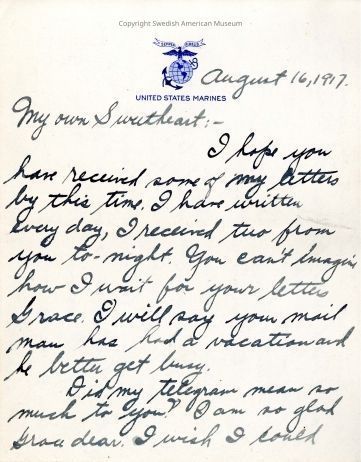 Copyright Swedish American Museum
SEMPER FIDELIS
UNITED STATES MARINES
August 16, 1917.
My own Sweetheart:-
I hope you
have received some of my letters
by this time. I have written
every day, I received two from
you to-night. You can't imagine
how I wait for your letter
Grace. I will say your mail
man has had a vacation and
he better get busy.
Did my telegram mean so
much to you? I am so glad
Grace dear. I wish I could